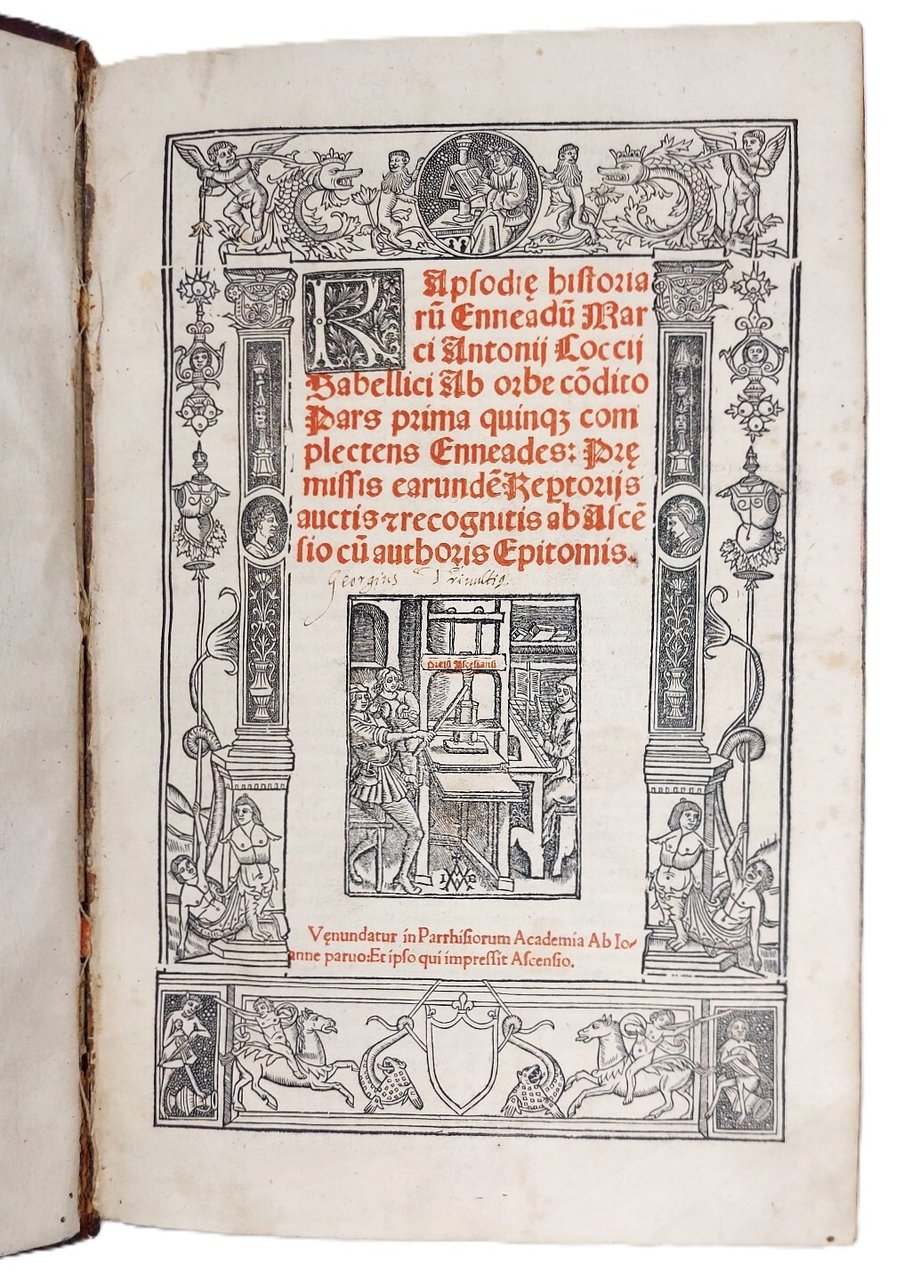 RApsodię historia
rū Enneadū Mar
ci Antonij Coccij
Sabellici Ab orbe cōdito
Pars prima quinqꝫ com
plectens Enneades: Prę
missis earundē Reꝑtorijs
auctis ⁊ recognitis ab Ascē
sio cū authoris Epitomis.
Georgius Trivultiꝰ.
Prelū Ascēsianū
I B
Vęnundatur in Parrhisiorum Academia Ab Io-
anne paruo: Et ipso qui impressit Ascensio.